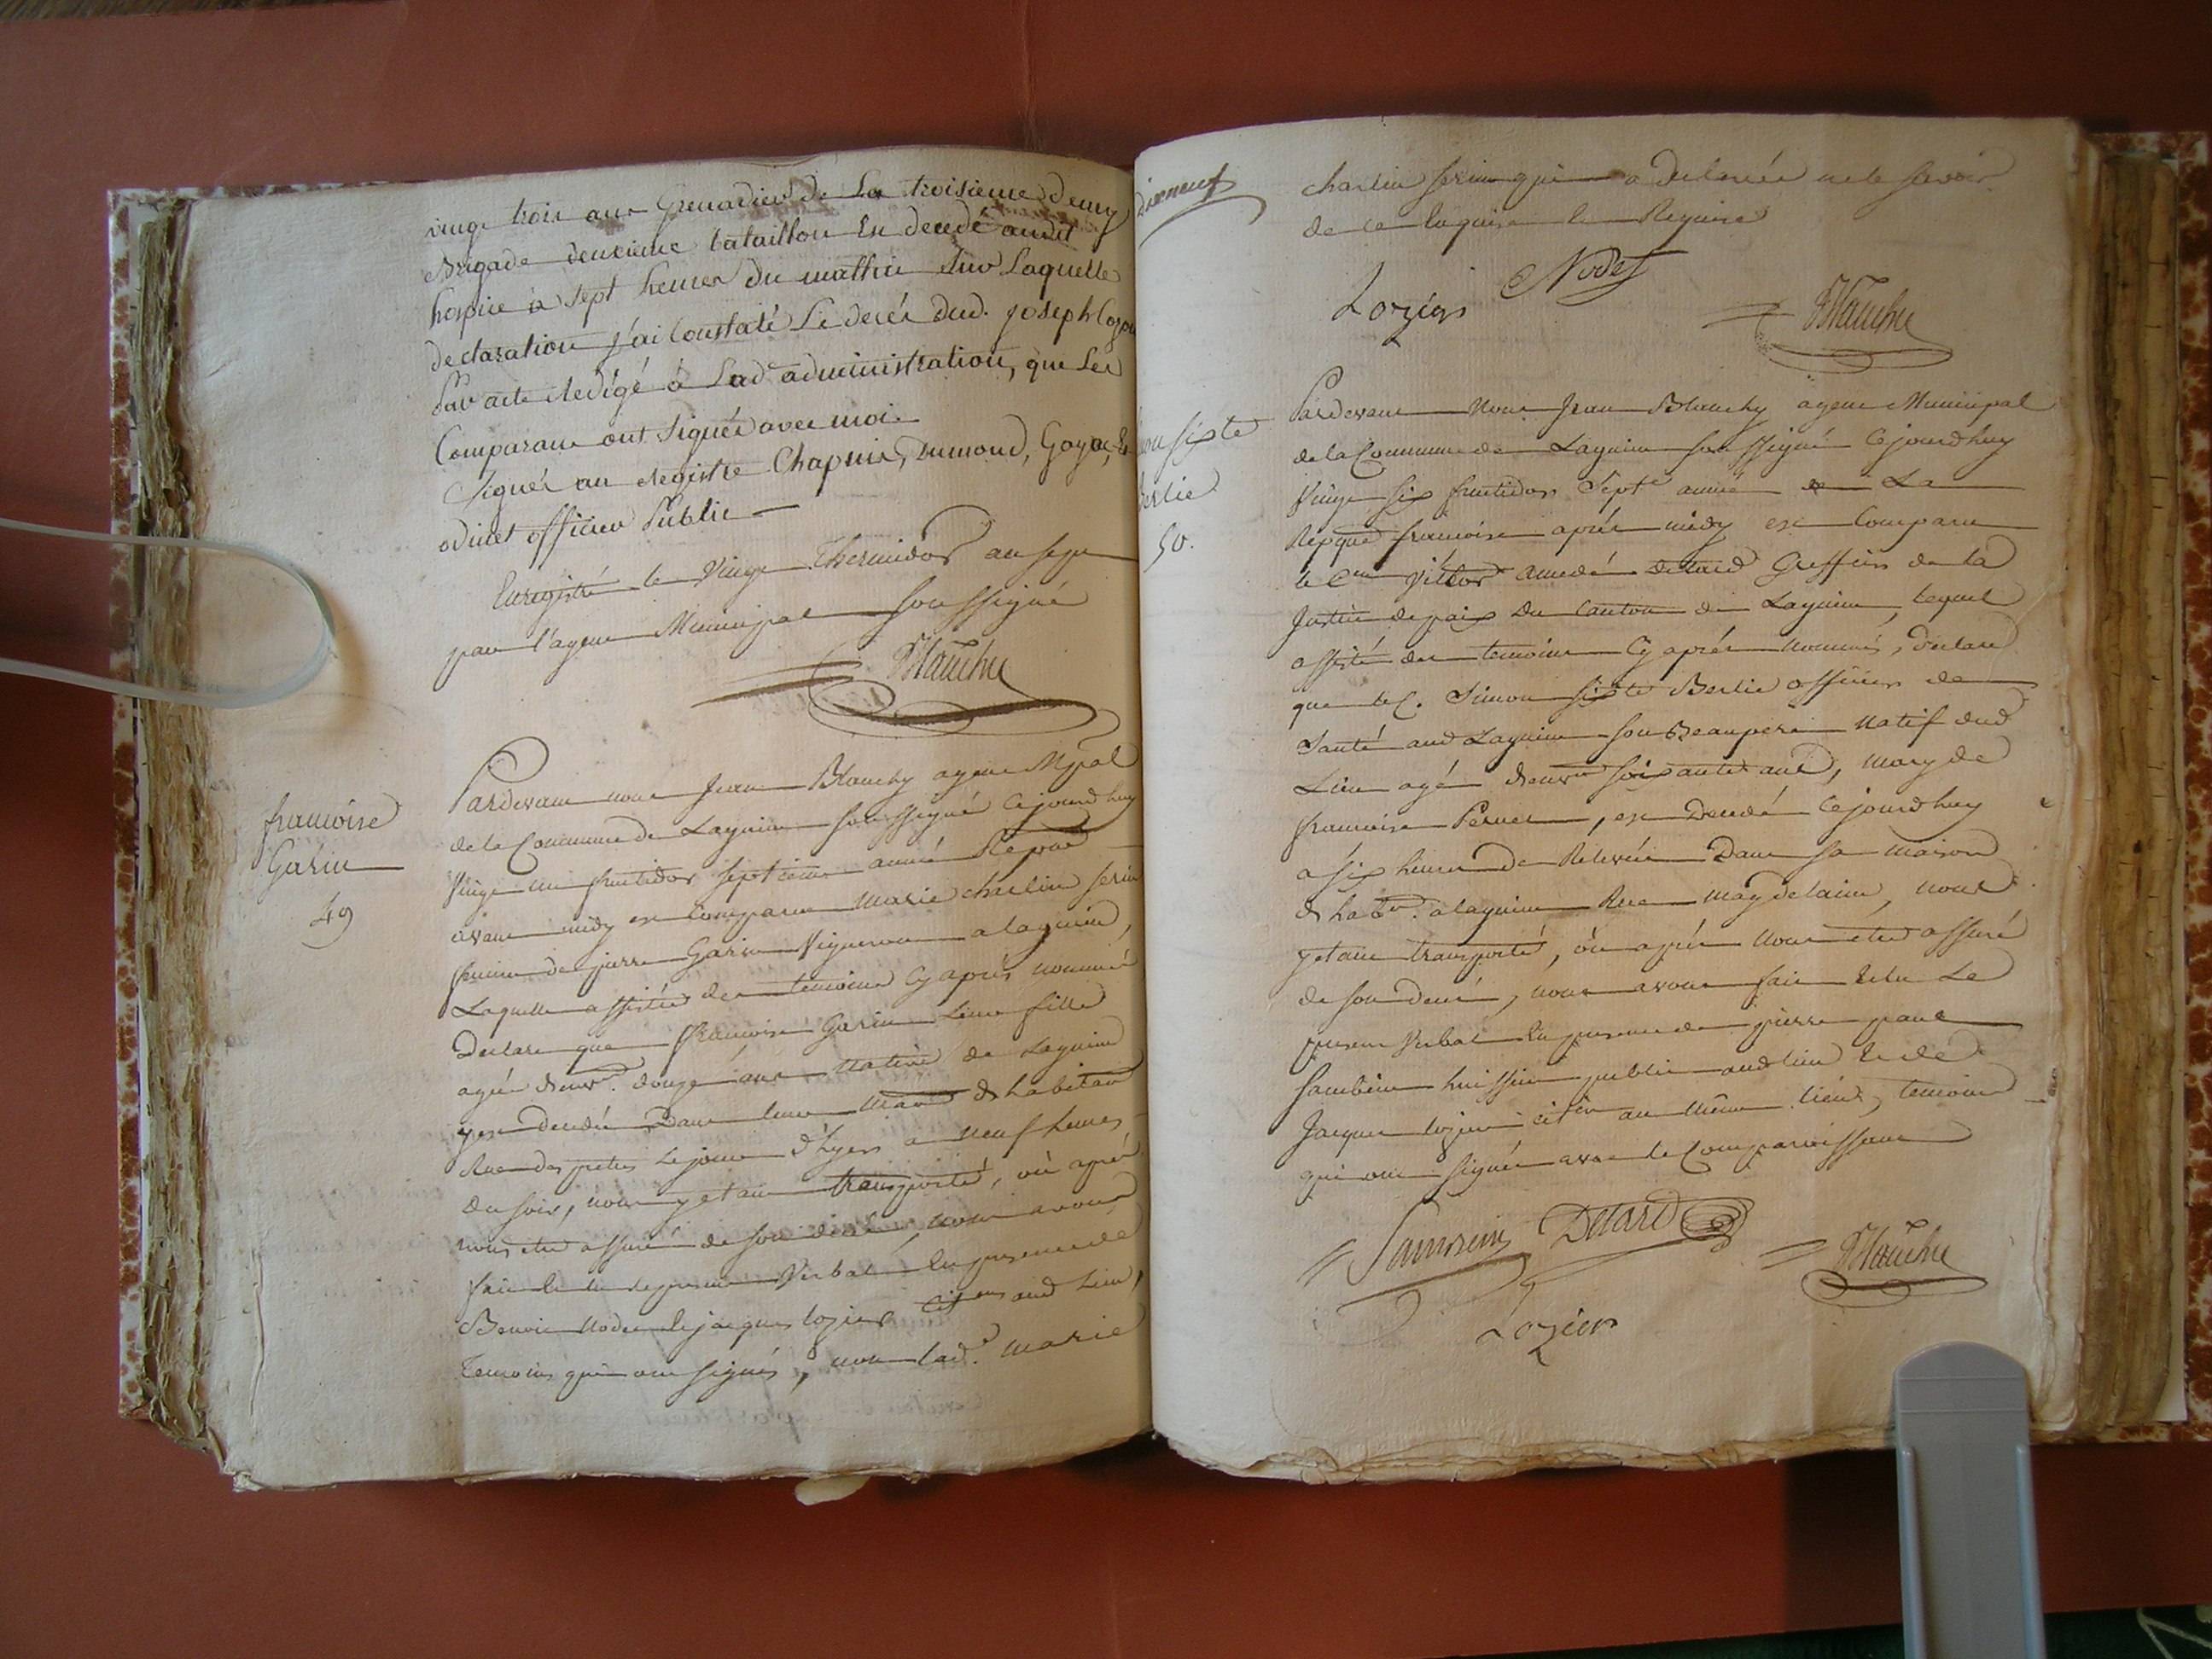 vingt trois ans Grenadier de La troisieme demy
Brigade deuxieme bataillon Est decedé audit
hospice à sept heures du mathin Sur Laquelle
declaration j'ai Constaté Le décés dud. joseph
L'acte Redigé à Lad.e administration, que Les
Comparans ont Signés avec moi
Signés au Registre Chapuis, Dumond, Goyon, Et
odinet officier Public
Enregistré le Vingt Thermidor an sept
par l'agent Municipal soussigné
Blanchy
francoise
Garin
49
Pardevant nous Jean Blanchy agent Mpal
de la Commune de Lagnieu soussigné Cejourdhuy
Vingt un fructidor septieme année Repque
avant midy est Comparue Marie charlin serin
femme de pierre Garin Vigneron a lagnieu,
Laquelle assistée des temoins Cy aprés nommés
Declare que francoise Garin Leur fille
agée denv.n douze ans Native de Lagnieu
y est decedée Dans leur Maison dhabitaon
Rue des pretres Le jour d'hyer a neuf heures
du soir, nous y etant transporté, où aprés
nous etre assuré de son décés, nous avons
fait le present Verbal En presence de
Benoit Nodet Et jacques lozier Citens aud Lieu,
Temoins qui ont signés, non lad.e Marie
dixneuf
charlin serin qui a declarée ne le savoir
de ce Enquise Et Requise
Lozier Nodet
Blanchy
sixte
Berlie
50.
Pardevant Nous Jean Blanchy agent Municipal
de la Commune de Lagnieu soussigné Cejourdhuy
Vingt six fructidor Septe année de La
Repque francoise aprés midy est Comparu
le Cen Victor amedé Detard Greffier de la
Justice de paix Du Canton de Lagnieu, lequel
assisté des temoins Cy aprés Nommés, declare
que le C. Simon sixte Berlie officier de
Santé aud Lagnieu son Beaupere Natif dud
Lieu agé denvn soixante ans, mary de
francoise Pernet, est Decedé Cejourdhuy
a six heures de Relevée Dans sa Maison
dhabon. a lagnieu Rue Magdelaine, nous
y etant transporté, où aprés Nous etre assuré
de son decés, nous avons fait Et lu Le
present Verbal En presence de pierre paul
Sambein huissier public aud lieu Et de
Jacques lozier citen au Même lieu, temoins
qui ont signés avec le Comparoissant
Sambein Detard
Blanchy
Lozier